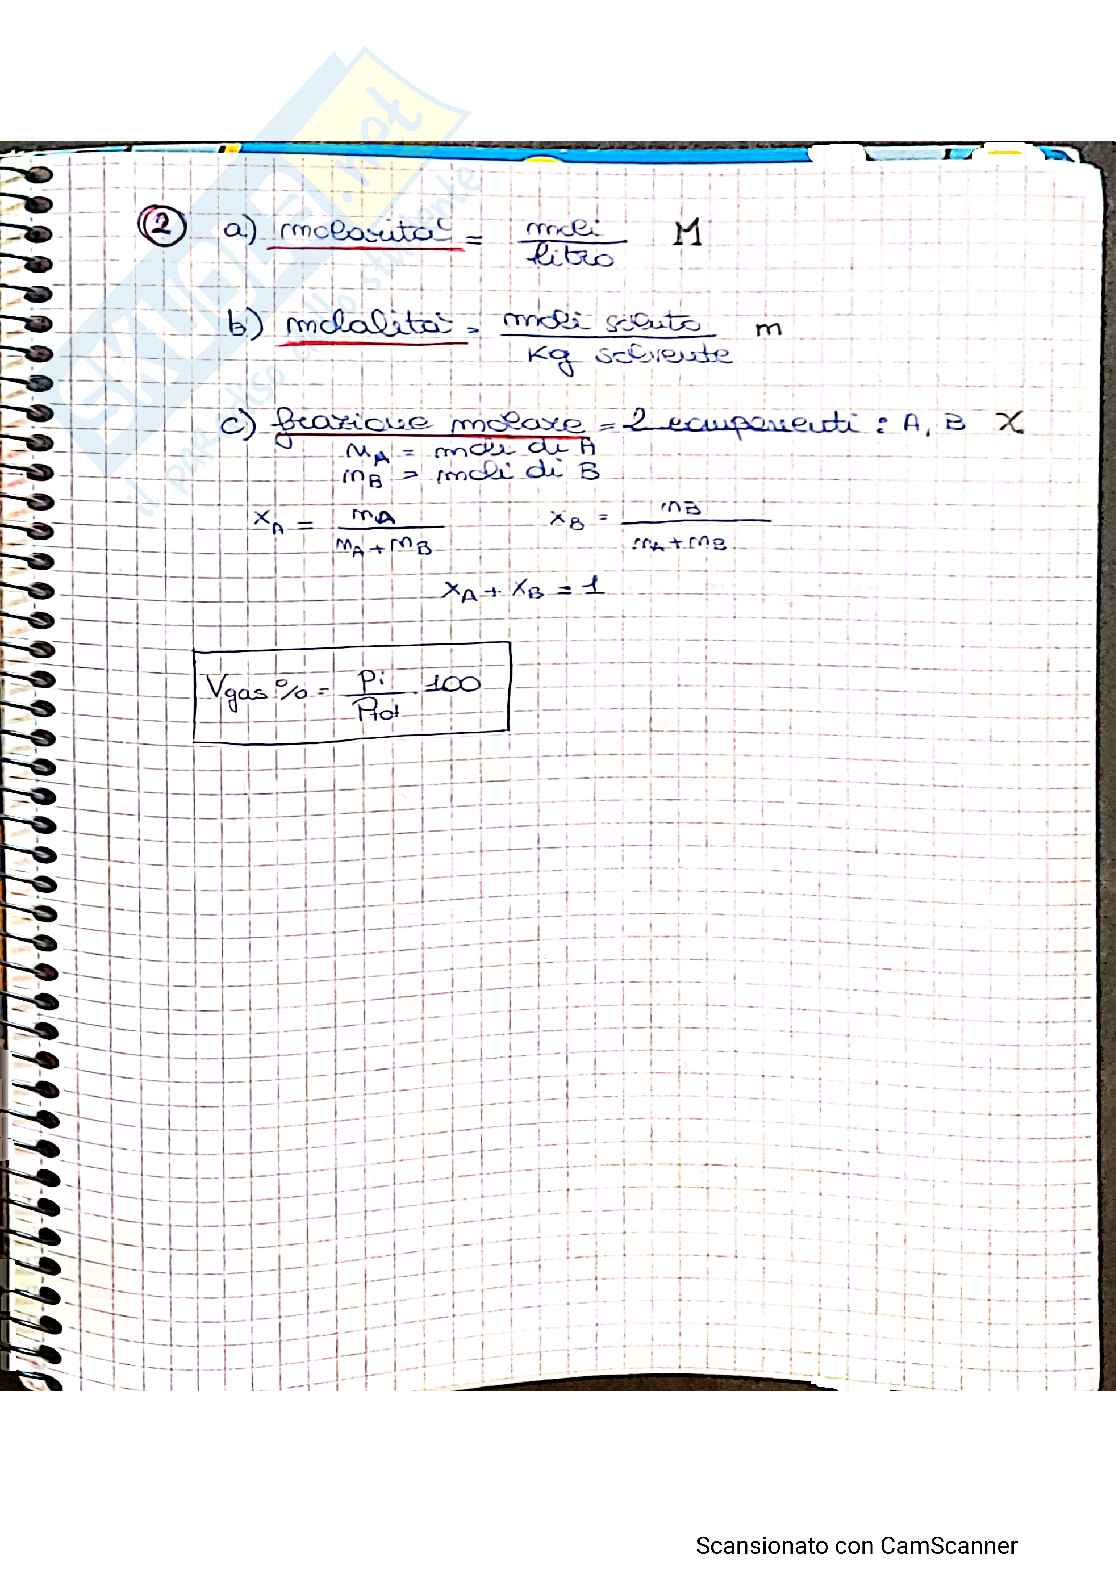 SKUOLA.net
il paradiso dello studente
② a) molarità = moli / litro M
b) molalità = moli soluto / Kg solvente m
c) frazione molare = 2 componenti : A, B X
nA = moli di A
nB = moli di B
xA = nA / nA + nB xB = nB / nA + nB
xA + xB = 1
Vgas % = Pi / Ptot · 100
Scansionato con CamScanner